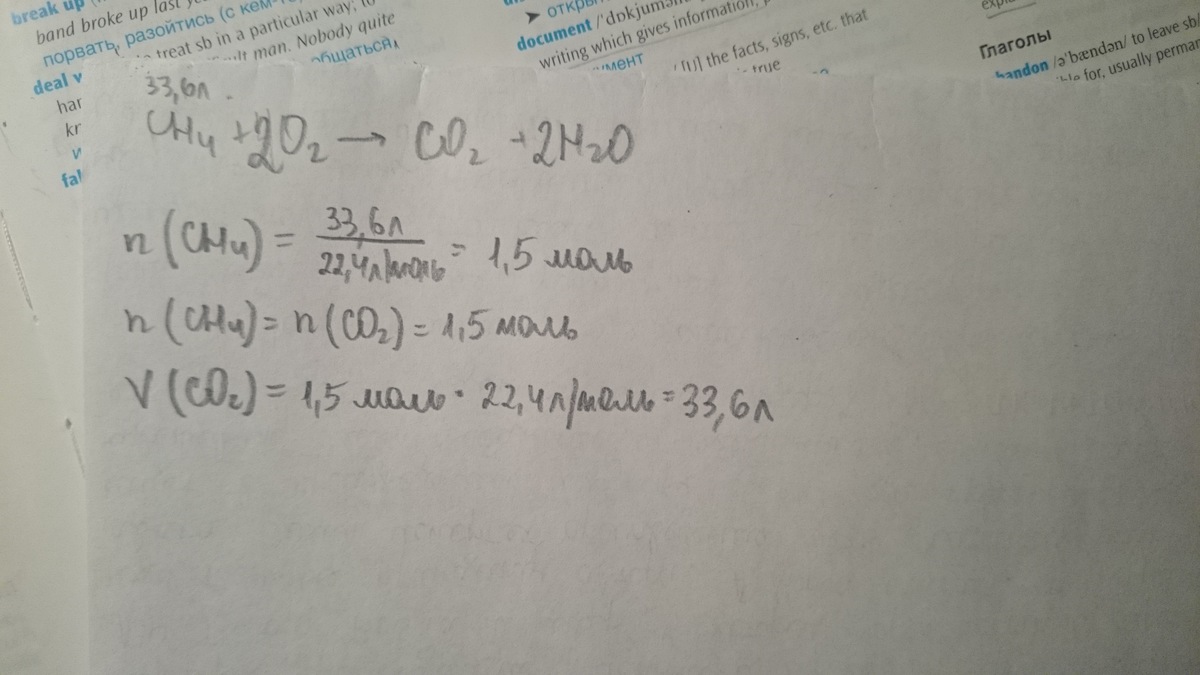 break up
band broke up last
порвать, разойтись (с кем-
treat sb in a particular way; to
man. Nobody quite
общаться,
deal
har
kr
fal
document
writing which gives information,
[U] the facts, signs, etc. that
true
Глаголы
/ə'bændən/ to leave sb/
for, usually
33,6л.
CH4 + 2O2 → CO2 + 2H2O
n(CH4) = 33,6л / 22,4л/моль = 1,5 моль
n(CH4) = n(CO2) = 1,5 моль
V(CO2) = 1,5 моль · 22,4л/моль = 33,6л